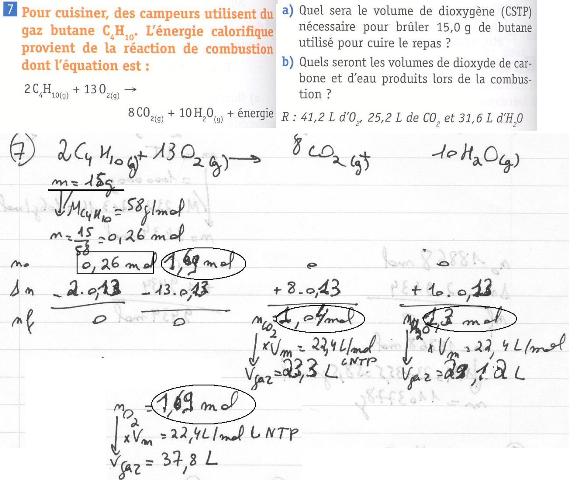 7 Pour cuisiner, des campeurs utilisent du
gaz butane C₄H₁₀. L'énergie calorifique
provient de la réaction de combustion
dont l'équation est :
2 C₄H₁₀₍g₎ + 13 O₂₍g₎ →
8 CO₂₍g₎ + 10 H₂O₍g₎ + énergie
a) Quel sera le volume de dioxygène (CSTP)
nécessaire pour brûler 15,0 g de butane
utilisé pour cuire le repas ?
b) Quels seront les volumes de dioxyde de car-
bone et d'eau produits lors de la combus-
tion ?
R : 41,2 L d'O₂, 25,2 L de CO₂ et 31,6 L d'H₂O
7 2C₄H₁₀(g) + 13O₂(g) → 8CO₂(g) + 10H₂O(g)
m = 15g
M C₄H₁₀ = 58g/mol
n = 15/58 = 0,26 mol
n₀ 0,26 mol 1,69 mol 0 0
Δn -2.0,13 -13.0,13 +8.0,13 +10.0,13
nf 0 0 n CO₂ = 1,04 mol 1,3 mol
×Vm = 22,4 L/mol CNTP ×Vm = 22,4 L/mol
Vgaz = 23,3 L Vgaz = 29,12 L
n O₂ = 1,69 mol
×Vm = 22,4 L/mol CNTP
Vgaz = 37,8 L